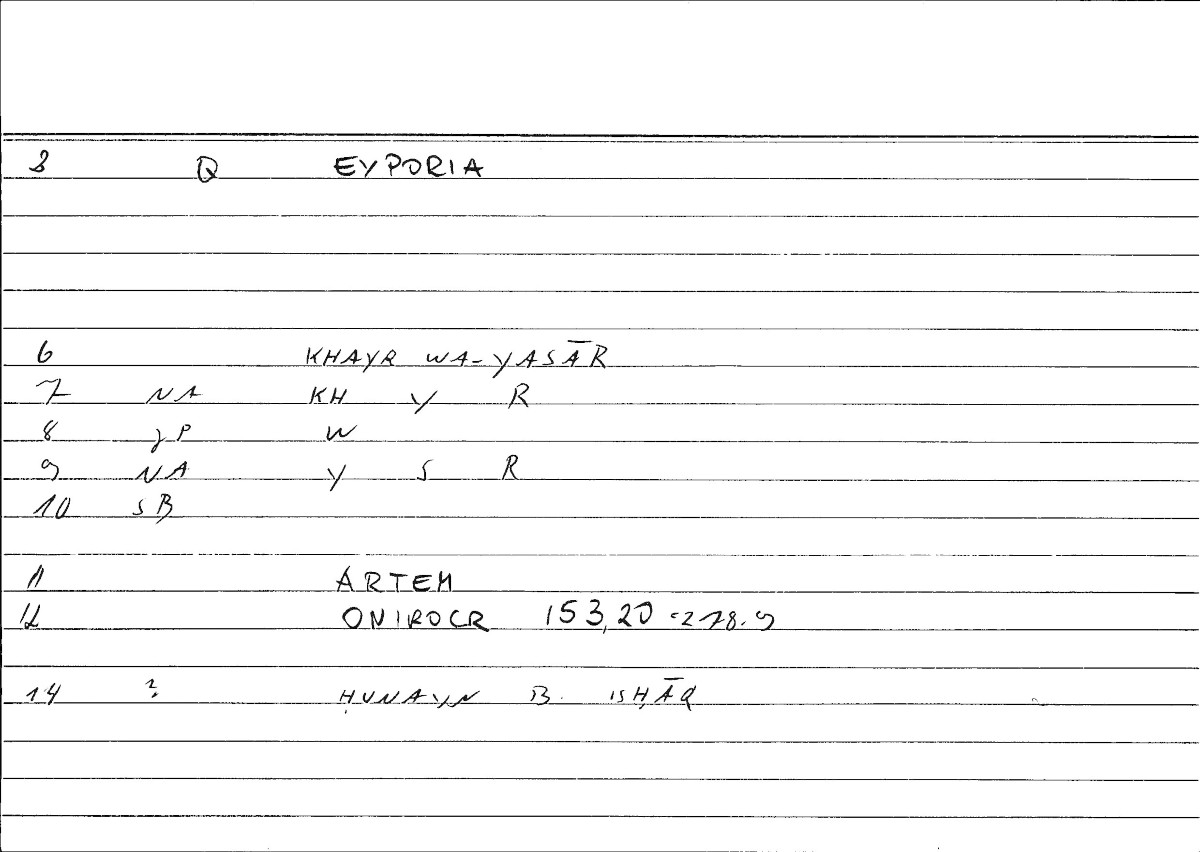 3 Q EYPORIA
6 KHAYR WA-YASĀR
7 NA KH Y R
8 γP W
9 NA Y S R
10 SB
11 ARTEM
12 ONIROCR 153,20 =278.9
14 ? ḤUNAYN B. ISḤĀQ